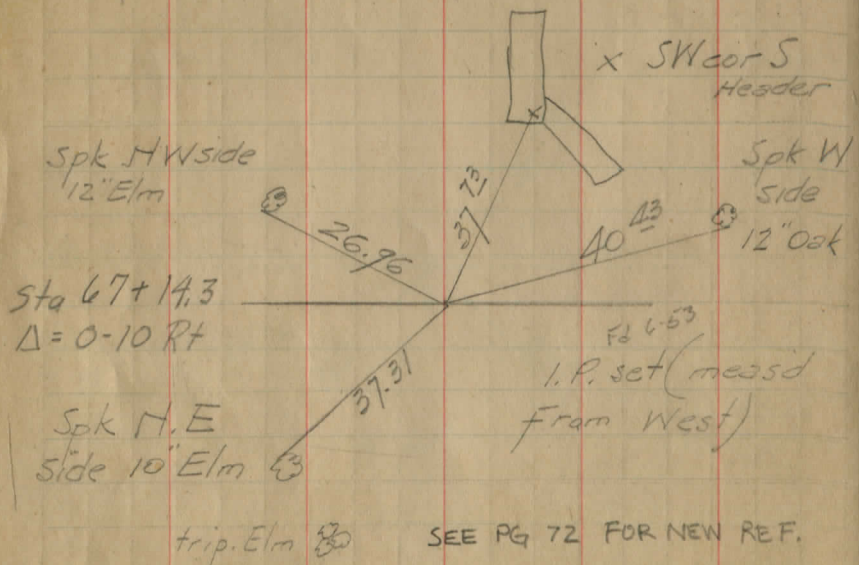 x SW cor S
Header
Spk NW side
12" Elm
Spk W
side
12" Oak
37 73
26.96
40 43
Sta 67+14.3
Δ = 0-10 Rt
Fd 6-53
I.P. set (measd
From West)
37.31
Spk N.E
side 10" Elm
trip. Elm
SEE PG 72 FOR NEW REF.